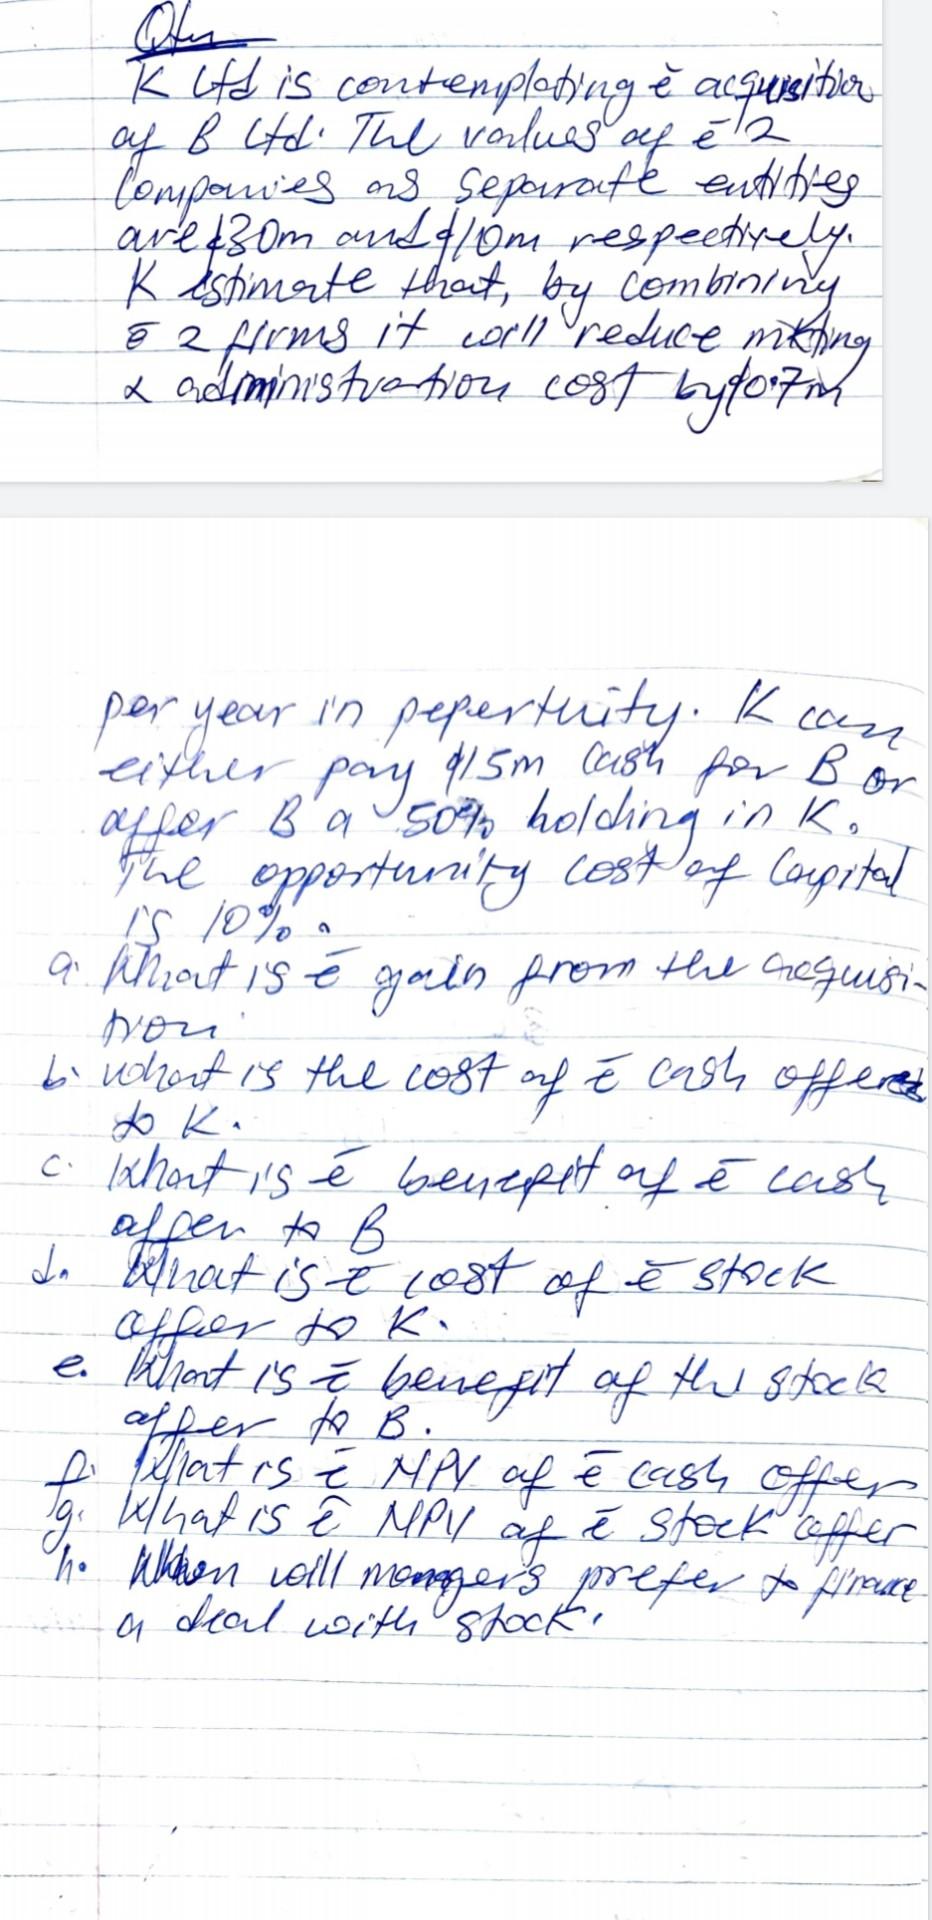 Qtn
K Ltd is contemplating ē acquisition
of B Ltd. The values of ē 2
Companies as separate entities
are $30m and $10m respectively.
K estimate that, by combining
ē 2 firms it will reduce mkting
& administration cost by $0.7m
per year in pepertuity. K can
either pay $15m cash for B or
offer B a 50% holding in K.
The opportunity cost of Capital
is 10%.
a. What is ē gain from the acquisi-
tion
b. what is the cost of ē cash offer
to K.
c. What is ē benefit of ē cash
offer to B
d. What is ē cost of ē stock
offer to K.
e. What is ē benefit of the stock
offer to B.
f. What is ē NPV of ē cash offer
g. What is ē NPV of ē stock offer
h. When will managers prefer to finance
a deal with stock.